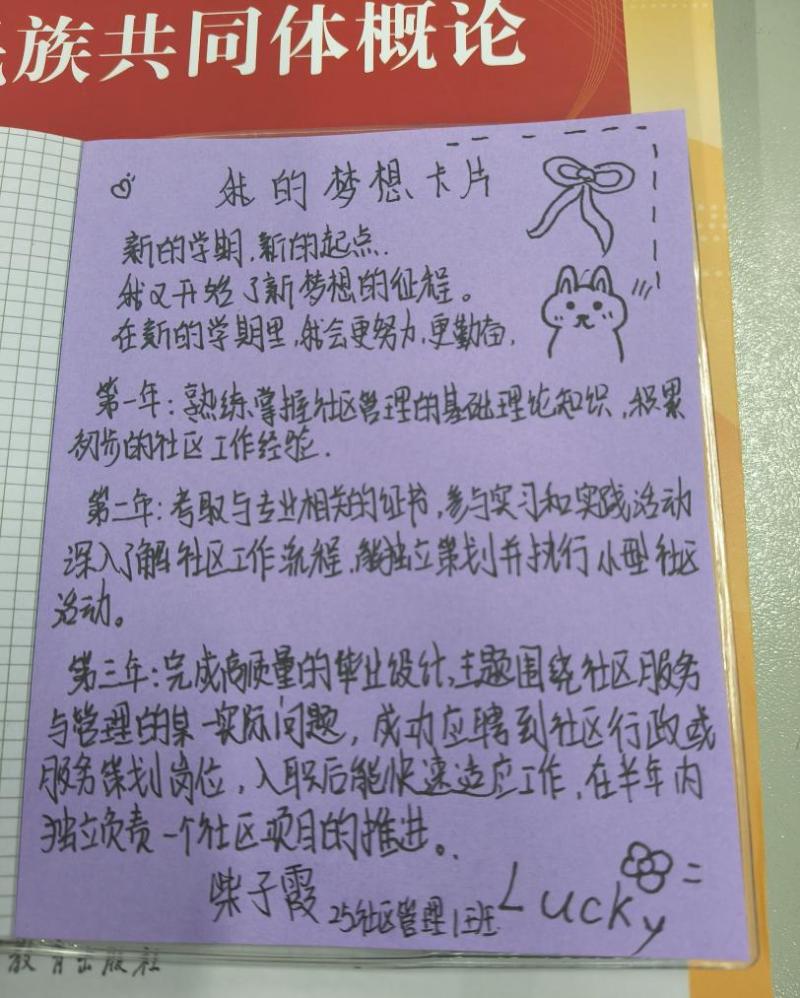 族共同体概论
我的梦想卡片
新的学期,新的起点.
我又开始了新梦想的征程。
在新的学期里,我会更努力,更勤奋,
第一年:熟练掌握社区管理的基础理论知识,积累
初步的社区工作经验.
第二年:考取与专业相关的证书,参与实习和实践活动
深入了解社区工作流程,能独立策划并执行小型社区
活动。
第三年:完成高质量的毕业设计,主题围绕社区服务
与管理的某一实际问题,成功应聘到社区行政或
服务策划岗位,入职后能快速适应工作,在半年内
独立负责一个社区项目的推进。
柴子霞 25社区管理1班
Lucky
教育出版社